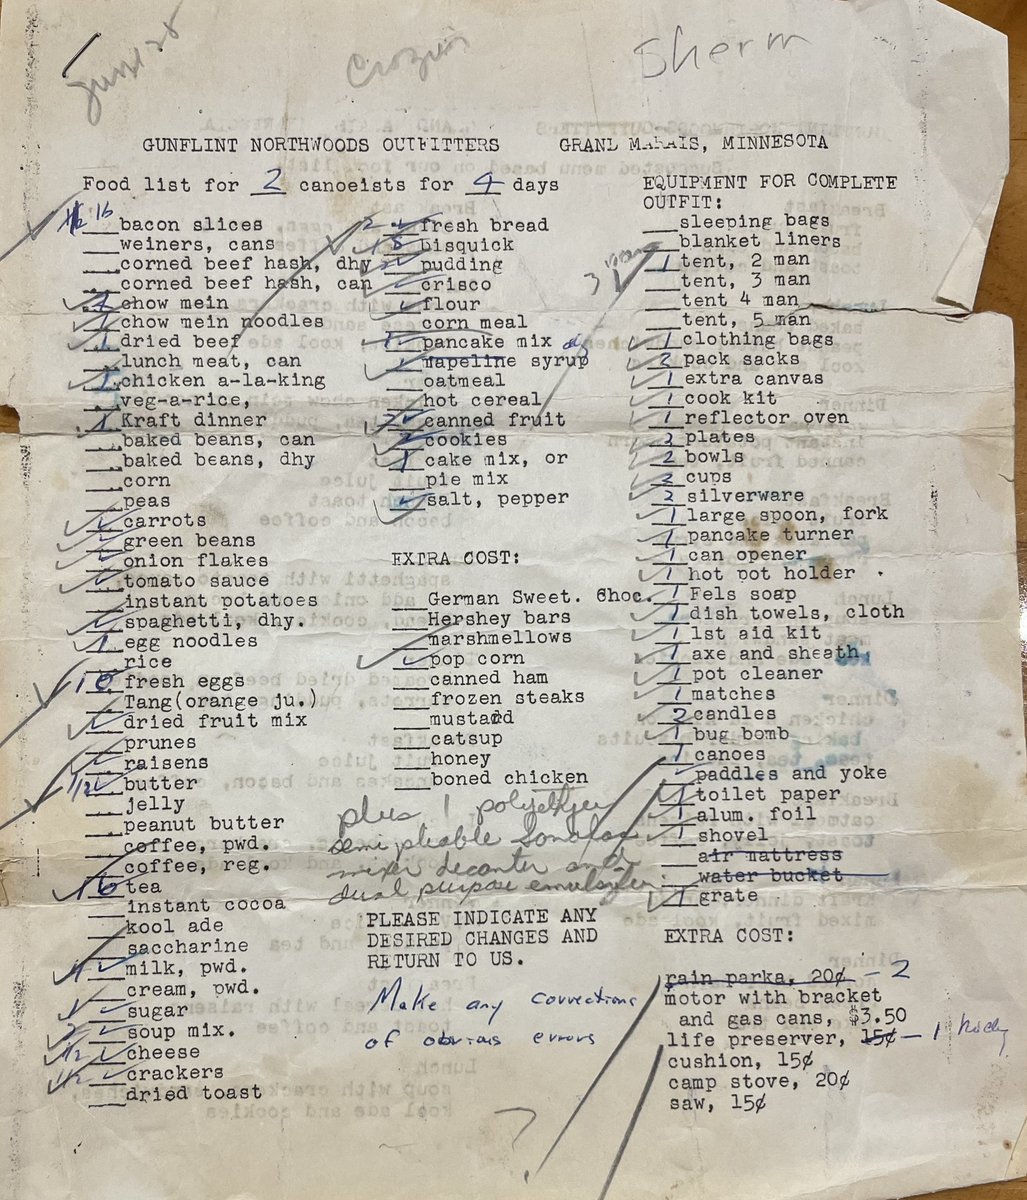 June 28
Sherm
GUNFLINT NORTHWOODS OUTFITTERS GRAND MARAIS, MINNESOTA
Food list for 2 canoeists for 4 days
1 1/2 lb bacon slices
weiners, cans
corned beef hash, dhy
corned beef hash, can
chow mein
1 chow mein noodles
1 dried beef
lunch meat, can
1 chicken a-la-king
veg-a-rice,
1 Kraft dinner
baked beans, can
baked beans, dhy
corn
peas
carrots
green beans
onion flakes
tomato sauce
instant potatoes
spaghetti, dhy.
1 egg noodles
rice
fresh eggs
Tang(orange ju.)
dried fruit mix
prunes
raisens
1/2 butter
jelly
peanut butter
coffee, pwd.
coffee, reg.
16 tea
instant cocoa
kool ade
saccharine
milk, pwd.
cream, pwd.
sugar
2 soup mix.
1/2 cheese
1/2 crackers
dried toast
2 fresh bread
bisquick
2 pudding
crisco
flour
corn meal
pancake mix
mapeline syrup
oatmeal
hot cereal
canned fruit
2 cookies
1 cake mix, or
pie mix
salt, pepper
EXTRA COST:
German Sweet. Choc.
Hershey bars
marshmellows
pop corn
canned ham
frozen steaks
mustard
catsup
honey
boned chicken
plus 1
semi pliable
mixer decanter and
dual purpose
PLEASE INDICATE ANY
DESIRED CHANGES AND
RETURN TO US.
Make any corrections
of obvious errors
EQUIPMENT FOR COMPLETE
OUTFIT:
sleeping bags
blanket liners
3 man
1 tent, 2 man
tent, 3 man
tent 4 man
tent, 5 man
1 clothing bags
2 pack sacks
1 extra canvas
1 cook kit
1 reflector oven
2 plates
2 bowls
2 cups
2 silverware
1 large spoon, fork
1 pancake turner
1 can opener
1 hot pot holder
1 Fels soap
1 dish towels, cloth
1 1st aid kit
1 axe and sheath
1 pot cleaner
1 matches
2 candles
1 bug bomb
1 canoes
paddles and yoke
1 toilet paper
1 alum. foil
1 shovel
air mattress
water bucket
1 grate
EXTRA COST:
rain parka, 20¢ - 2
motor with bracket
and gas cans, $3.50
life preserver, 15¢ - 1
cushion, 15¢
camp stove, 20¢
saw, 15¢